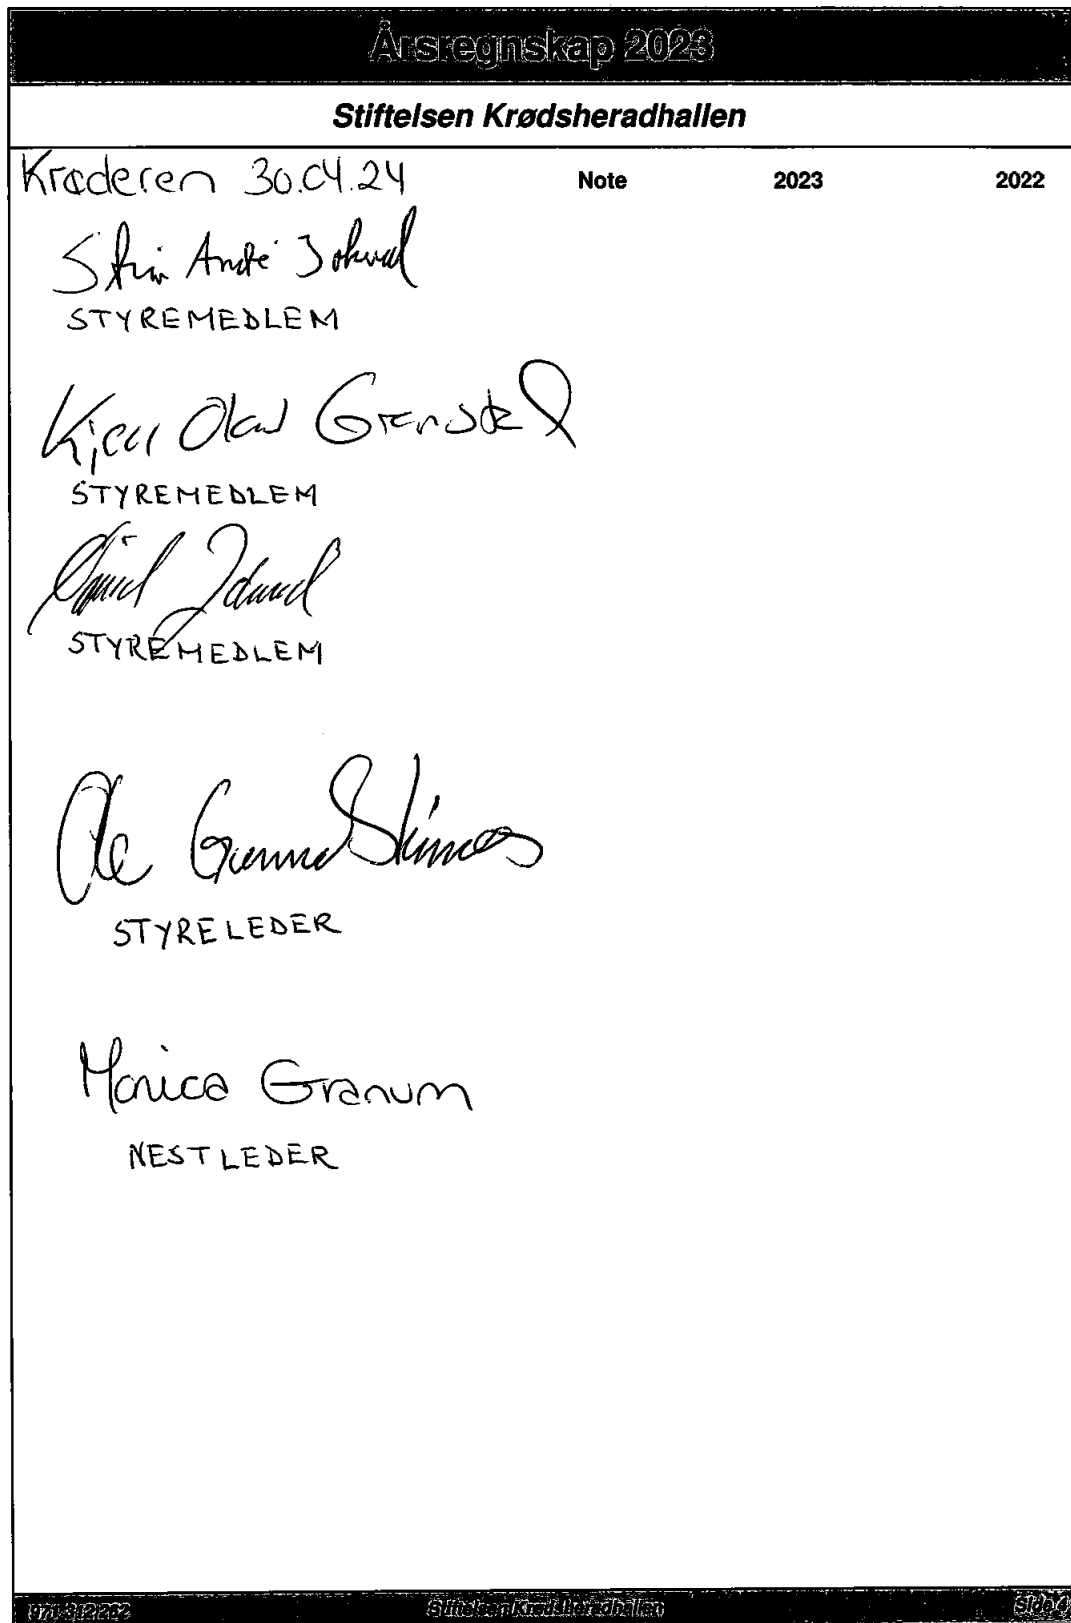 Årsregnskap 2023
Stiftelsen Krødsheradhallen
Krøderen 30.04.24 Note 2023 2022
André
STYREMEDLEM
Kjell Olav
STYREMEDLEM
STYREMEDLEM
Ole Gunnar
STYRELEDER
Monica Granum
NESTLEDER
971 312 262 Stiftelsen Krødsheradhallen Side 4